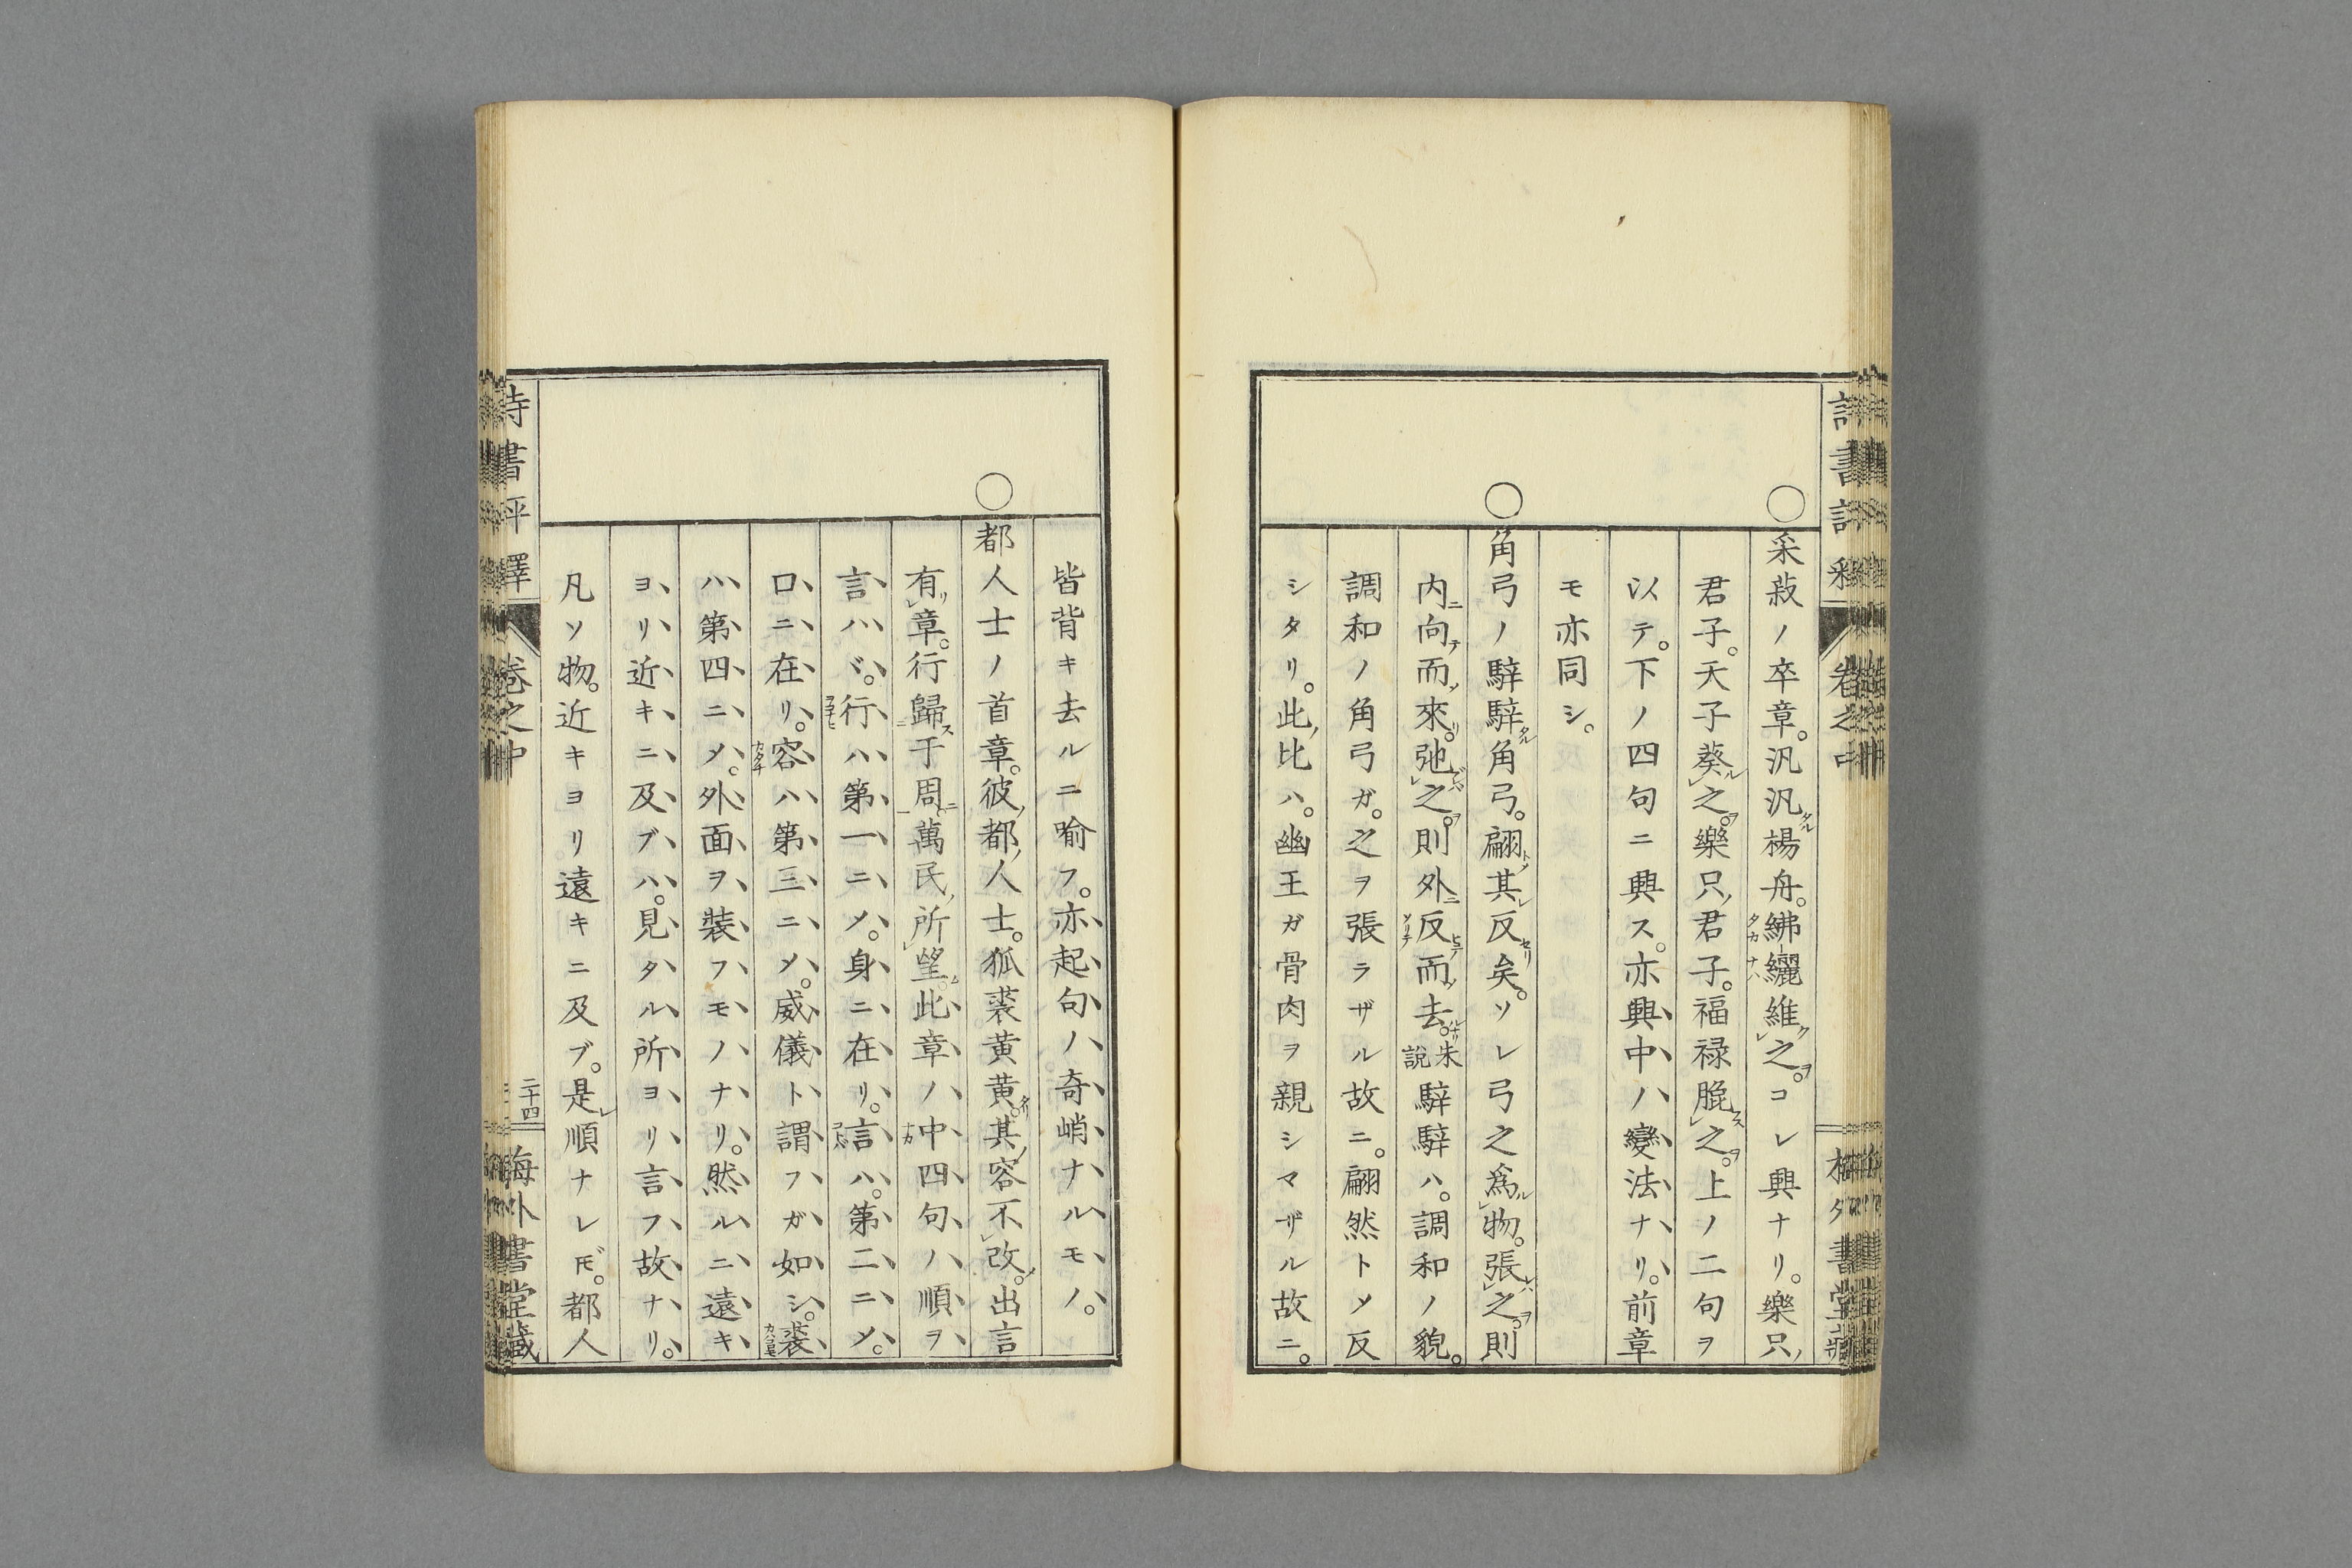 ○采菽ノ卒章。汎汎楊舟。紼纚維之。コレ興ナリ。樂只
君子。天子葵之。樂只君子。福禄膍之。上ノ二句ヲ
以テ。下ノ四句ニ興ス。亦興中ノ變法ナリ。前章
モ亦同シ。
○角弓ノ騂騂角弓。翩其反矣。ソレ弓之爲物。張之則
内向而來。弛之則外反而去。朱説騂騂ハ。調和ノ貌。
調和ノ角弓ガ。之ヲ張ラザル故ニ。翩然トメ反
シタリ。此比ハ。幽王ガ骨肉ヲ親シマザル故ニ。
皆背キ去ルニ喻フ。亦起句ノ奇峭ナルモノ。
○都人士ノ首章。彼都人士。狐裘黄黄。其容不改。出言
有章。行歸于周。萬民所望。此章ノ中四句ノ順ヲ
言ハヾ。行ハ第一ニメ。身ニ在リ。言ハ。第二ニメ。
口ニ在リ。容ハ第三ニメ。威儀ト謂フガ如シ。裘
ハ第四ニメ。外面ヲ装フモノナリ。然ルニ遠キ
ヨリ近キニ及ブハ。見タル所ヨリ言フ故ナリ。
凡ソ物。近キヨリ遠キニ及ブ。是順ナレ𪜈。都人
詩書評釋 卷之中 二十四